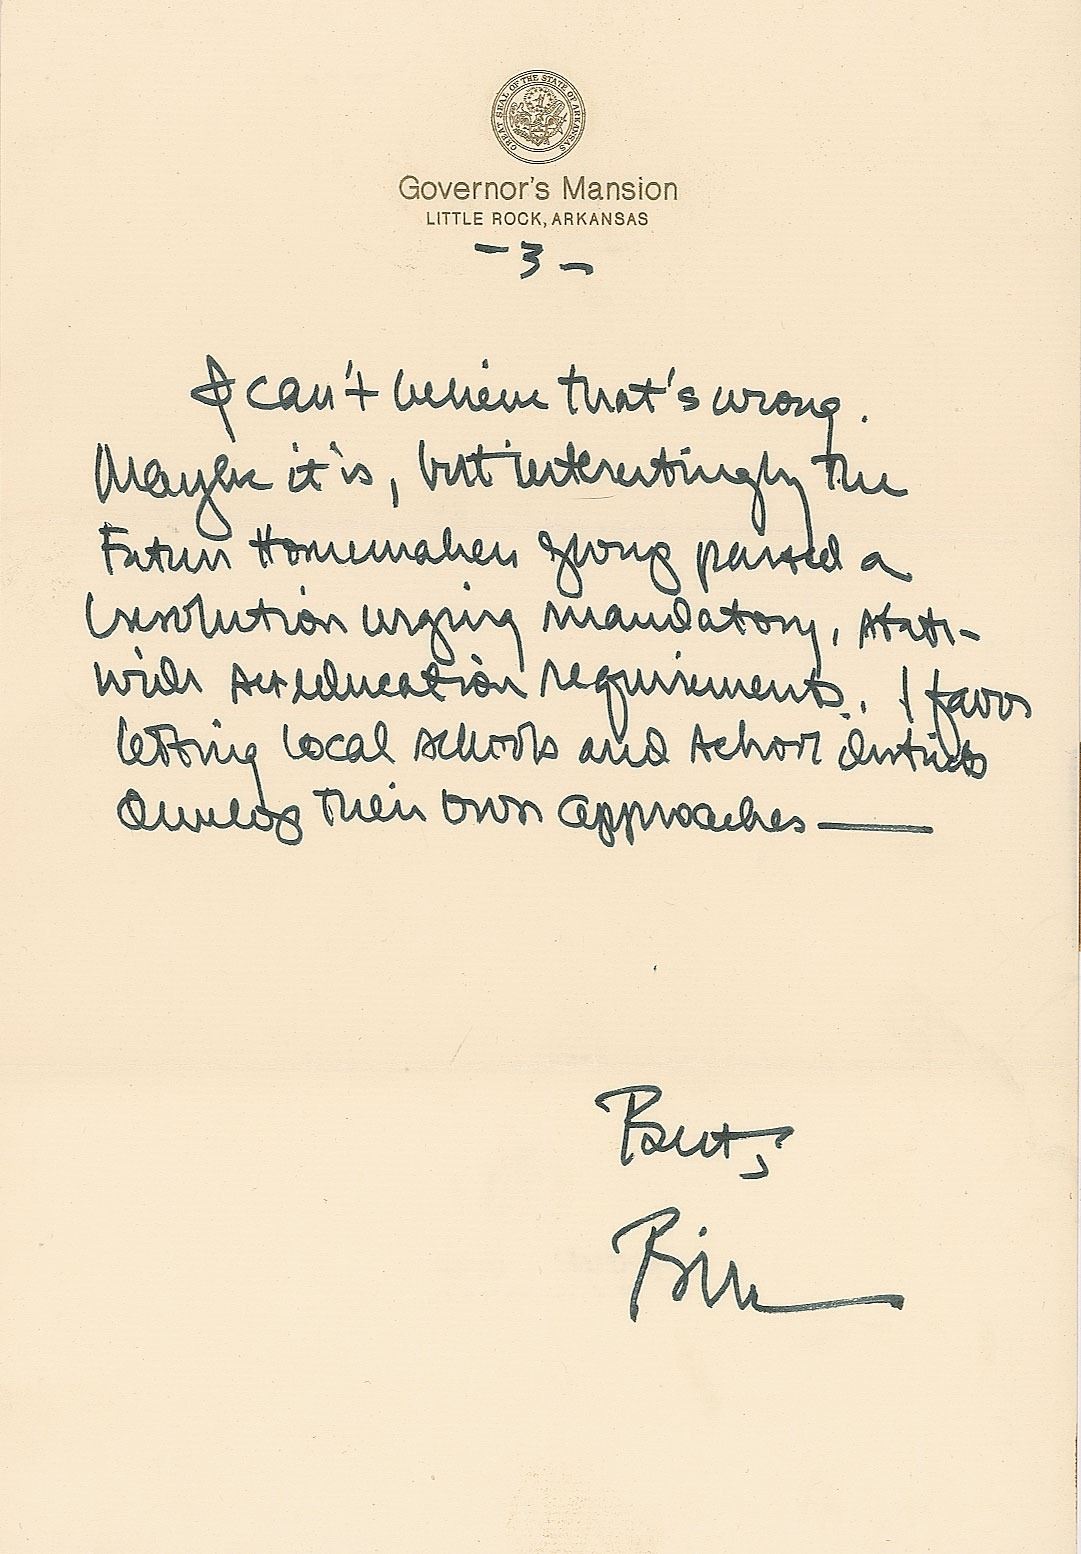 GREAT SEAL OF THE STATE OF ARKANSAS
Governor's Mansion
LITTLE ROCK, ARKANSAS
-3-
I can't believe that's wrong.
Maybe it is, but interestingly the
Future Homemakers group passed a
resolution urging mandatory, state-
wide sex education requirements. I favor
letting local schools and school districts
develop their own approaches—
Best,
Bill